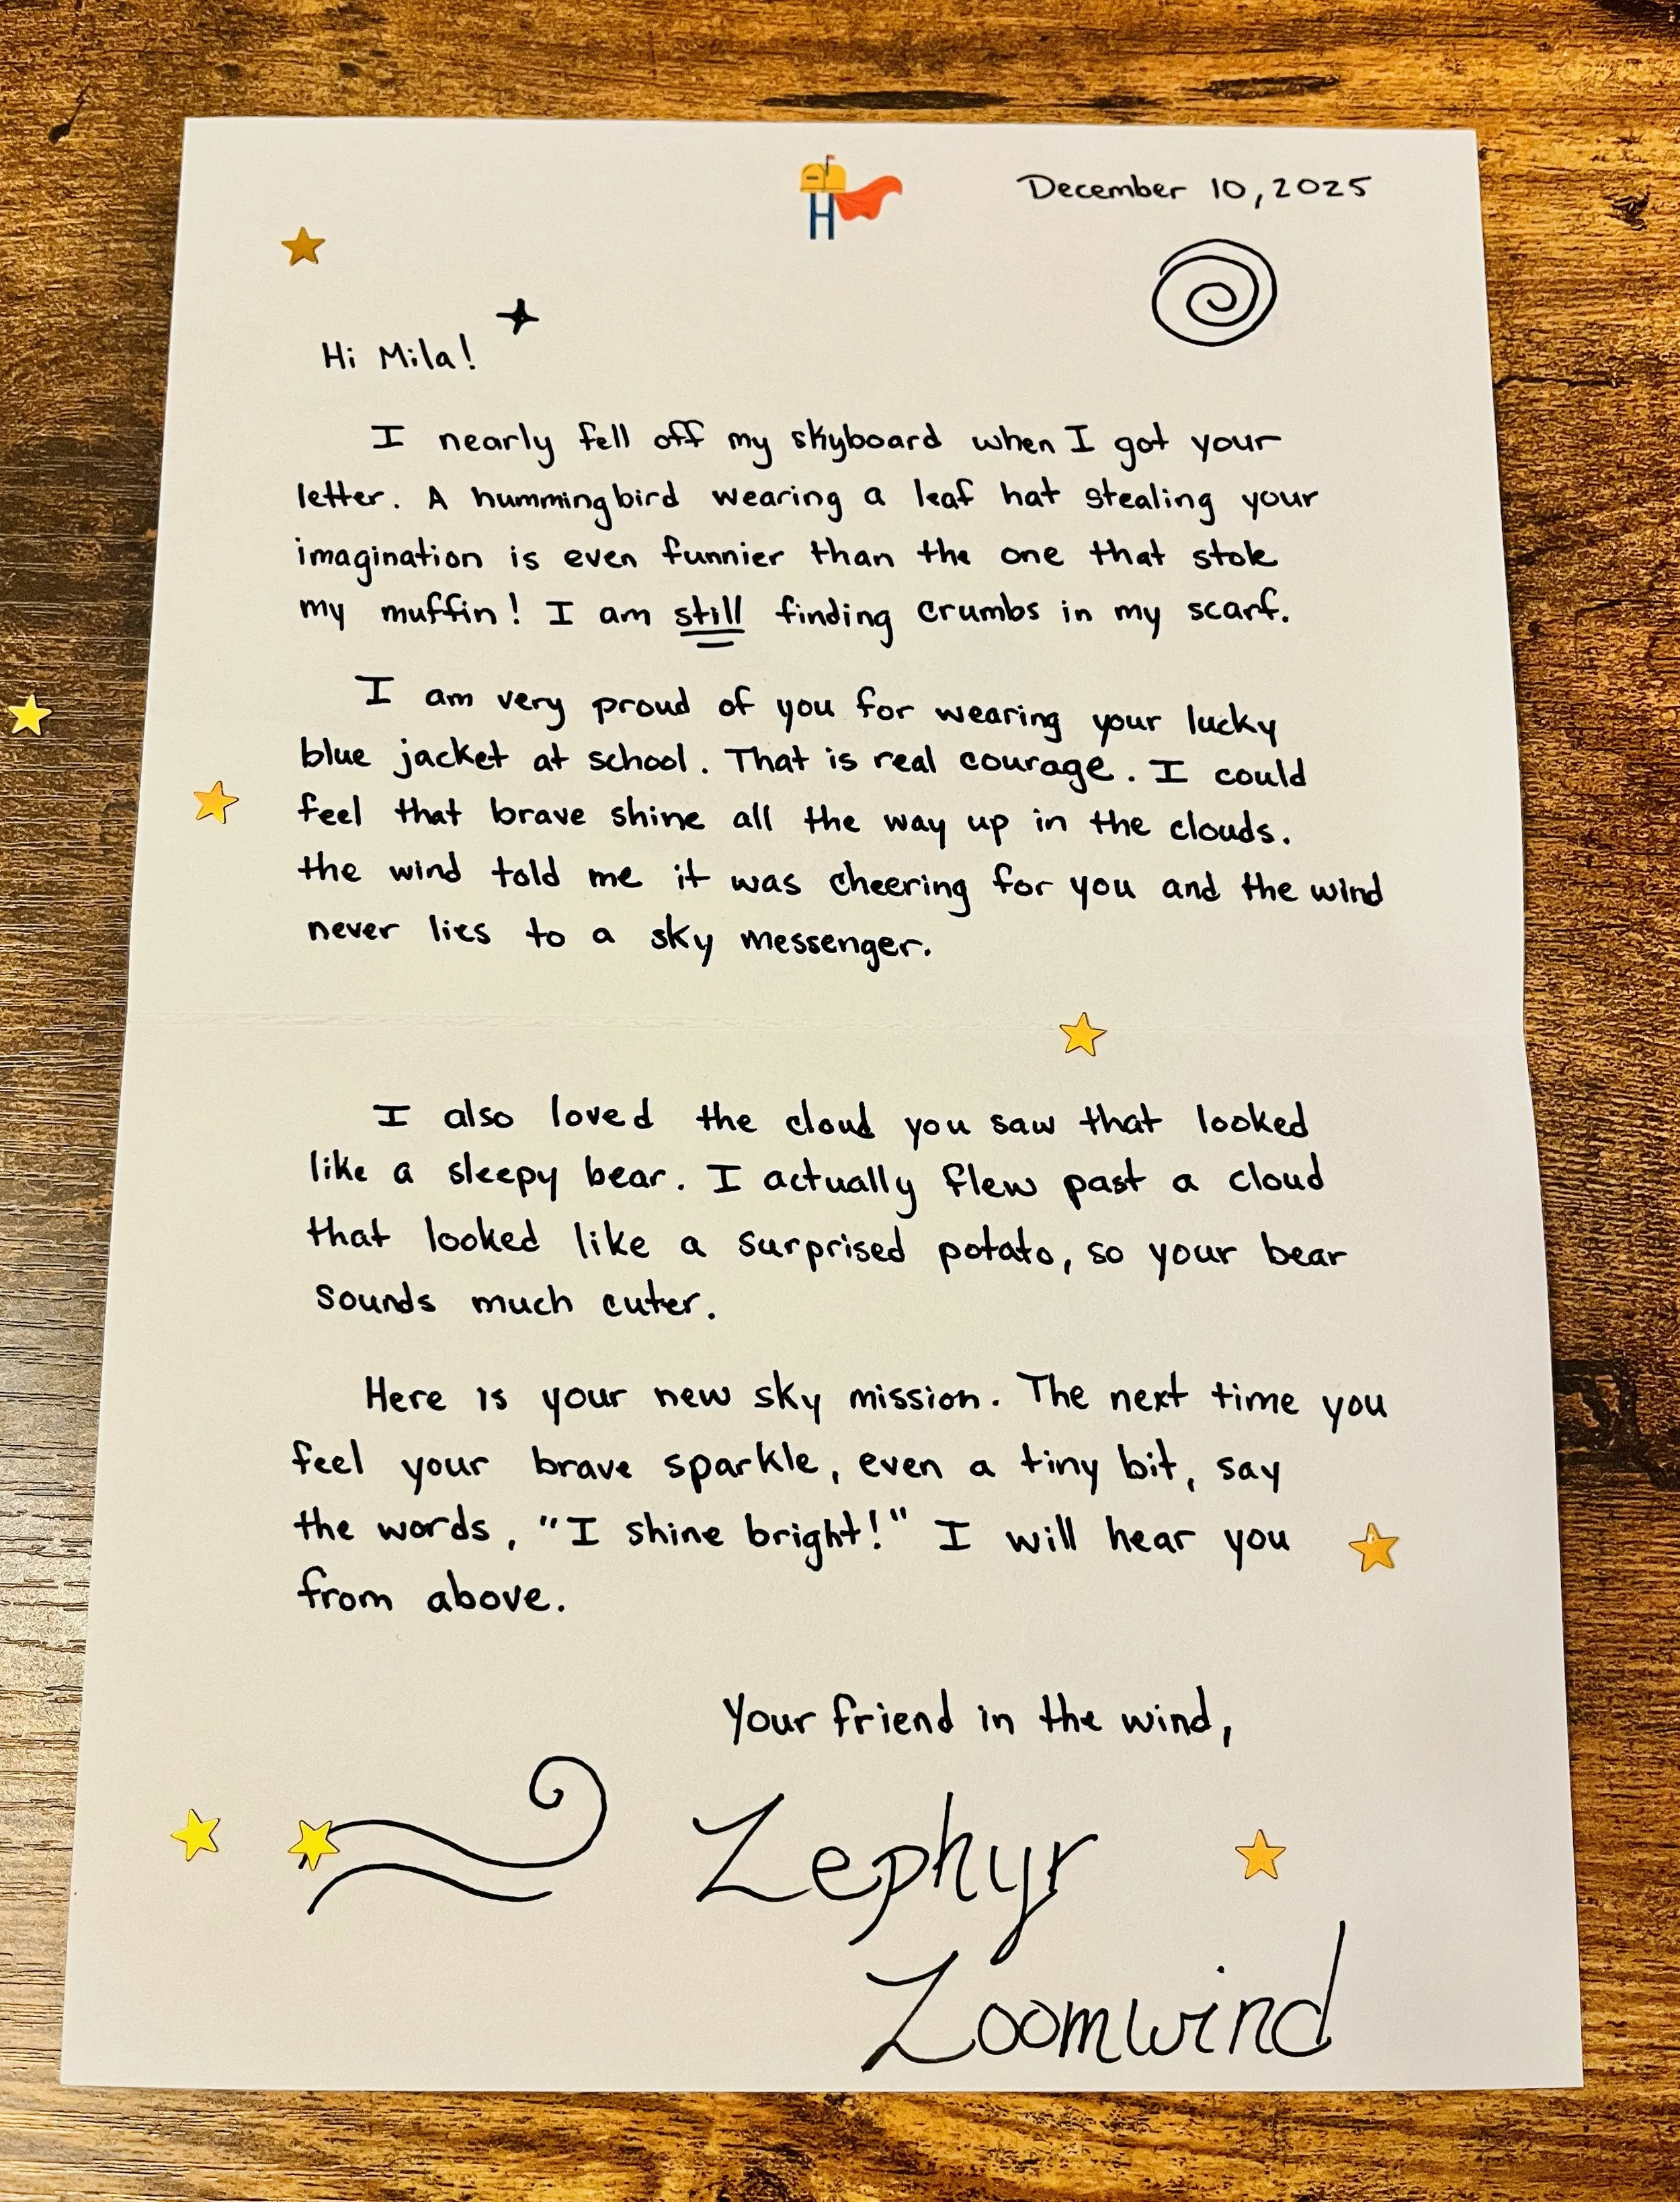 H
December 10, 2025
Hi Mila!
I nearly fell off my skyboard when I got your
letter. A hummingbird wearing a leaf hat stealing your
imagination is even funnier than the one that stole
my muffin! I am still finding crumbs in my scarf.
I am very proud of you for wearing your lucky
blue jacket at school. That is real courage. I could
feel that brave shine all the way up in the clouds.
the wind told me it was cheering for you and the wind
never lies to a sky messenger.
I also loved the cloud you saw that looked
like a sleepy bear. I actually flew past a cloud
that looked like a surprised potato, so your bear
sounds much cuter.
Here is your new sky mission. The next time you
feel your brave sparkle, even a tiny bit, say
the words, "I shine bright!" I will hear you
from above.
Your friend in the wind,
Zephyr
Zoomwind